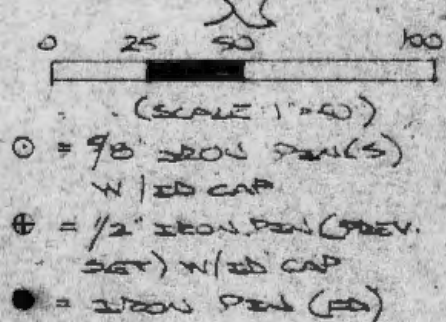 0 25 50 100
(SCALE 1"=50')
⊙ = 5/8" IRON PIN(S)
W/ID CAP
⊕ = 1/2" IRON PIN (PREV.
SET) W/ID CAP
● = IRON PIN (FD)